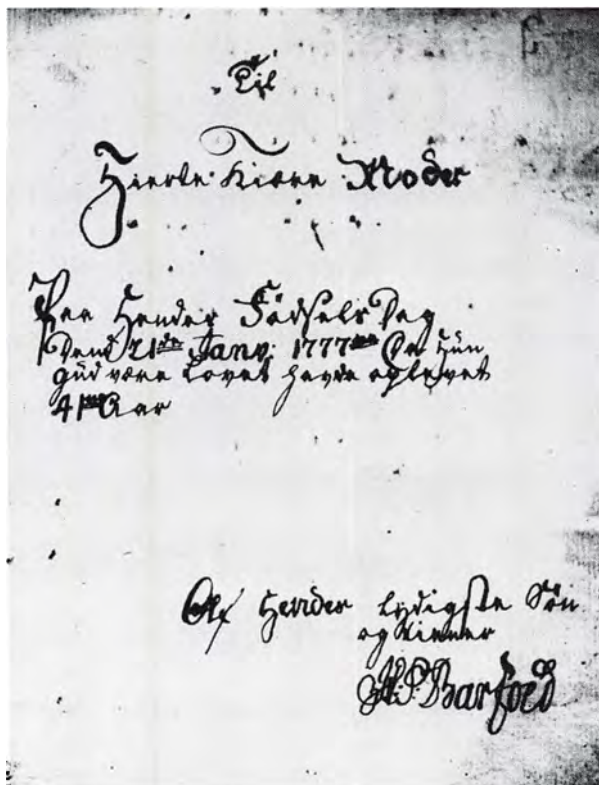 Til
Hierte Kiere Moder
Paa Hendes Födsels Dag
Dend 21de Janv: 1777 Da Hun
gud være Lovet havde oplevet
41 Aar
Af Hendes lydigste Sön
og Tienner
H.P. Barfoed